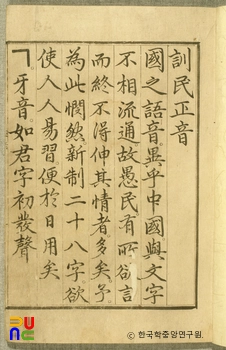 訓民正音
國之語音。異乎中國。與文字
不相流通。故愚民有所欲言
而終不得伸其情者多矣。予
為此憫然。新制二十八字。欲
使人人易習便於日用矣
ㄱ牙音。如君字初發聲
ⓒ 한국학중앙연구원